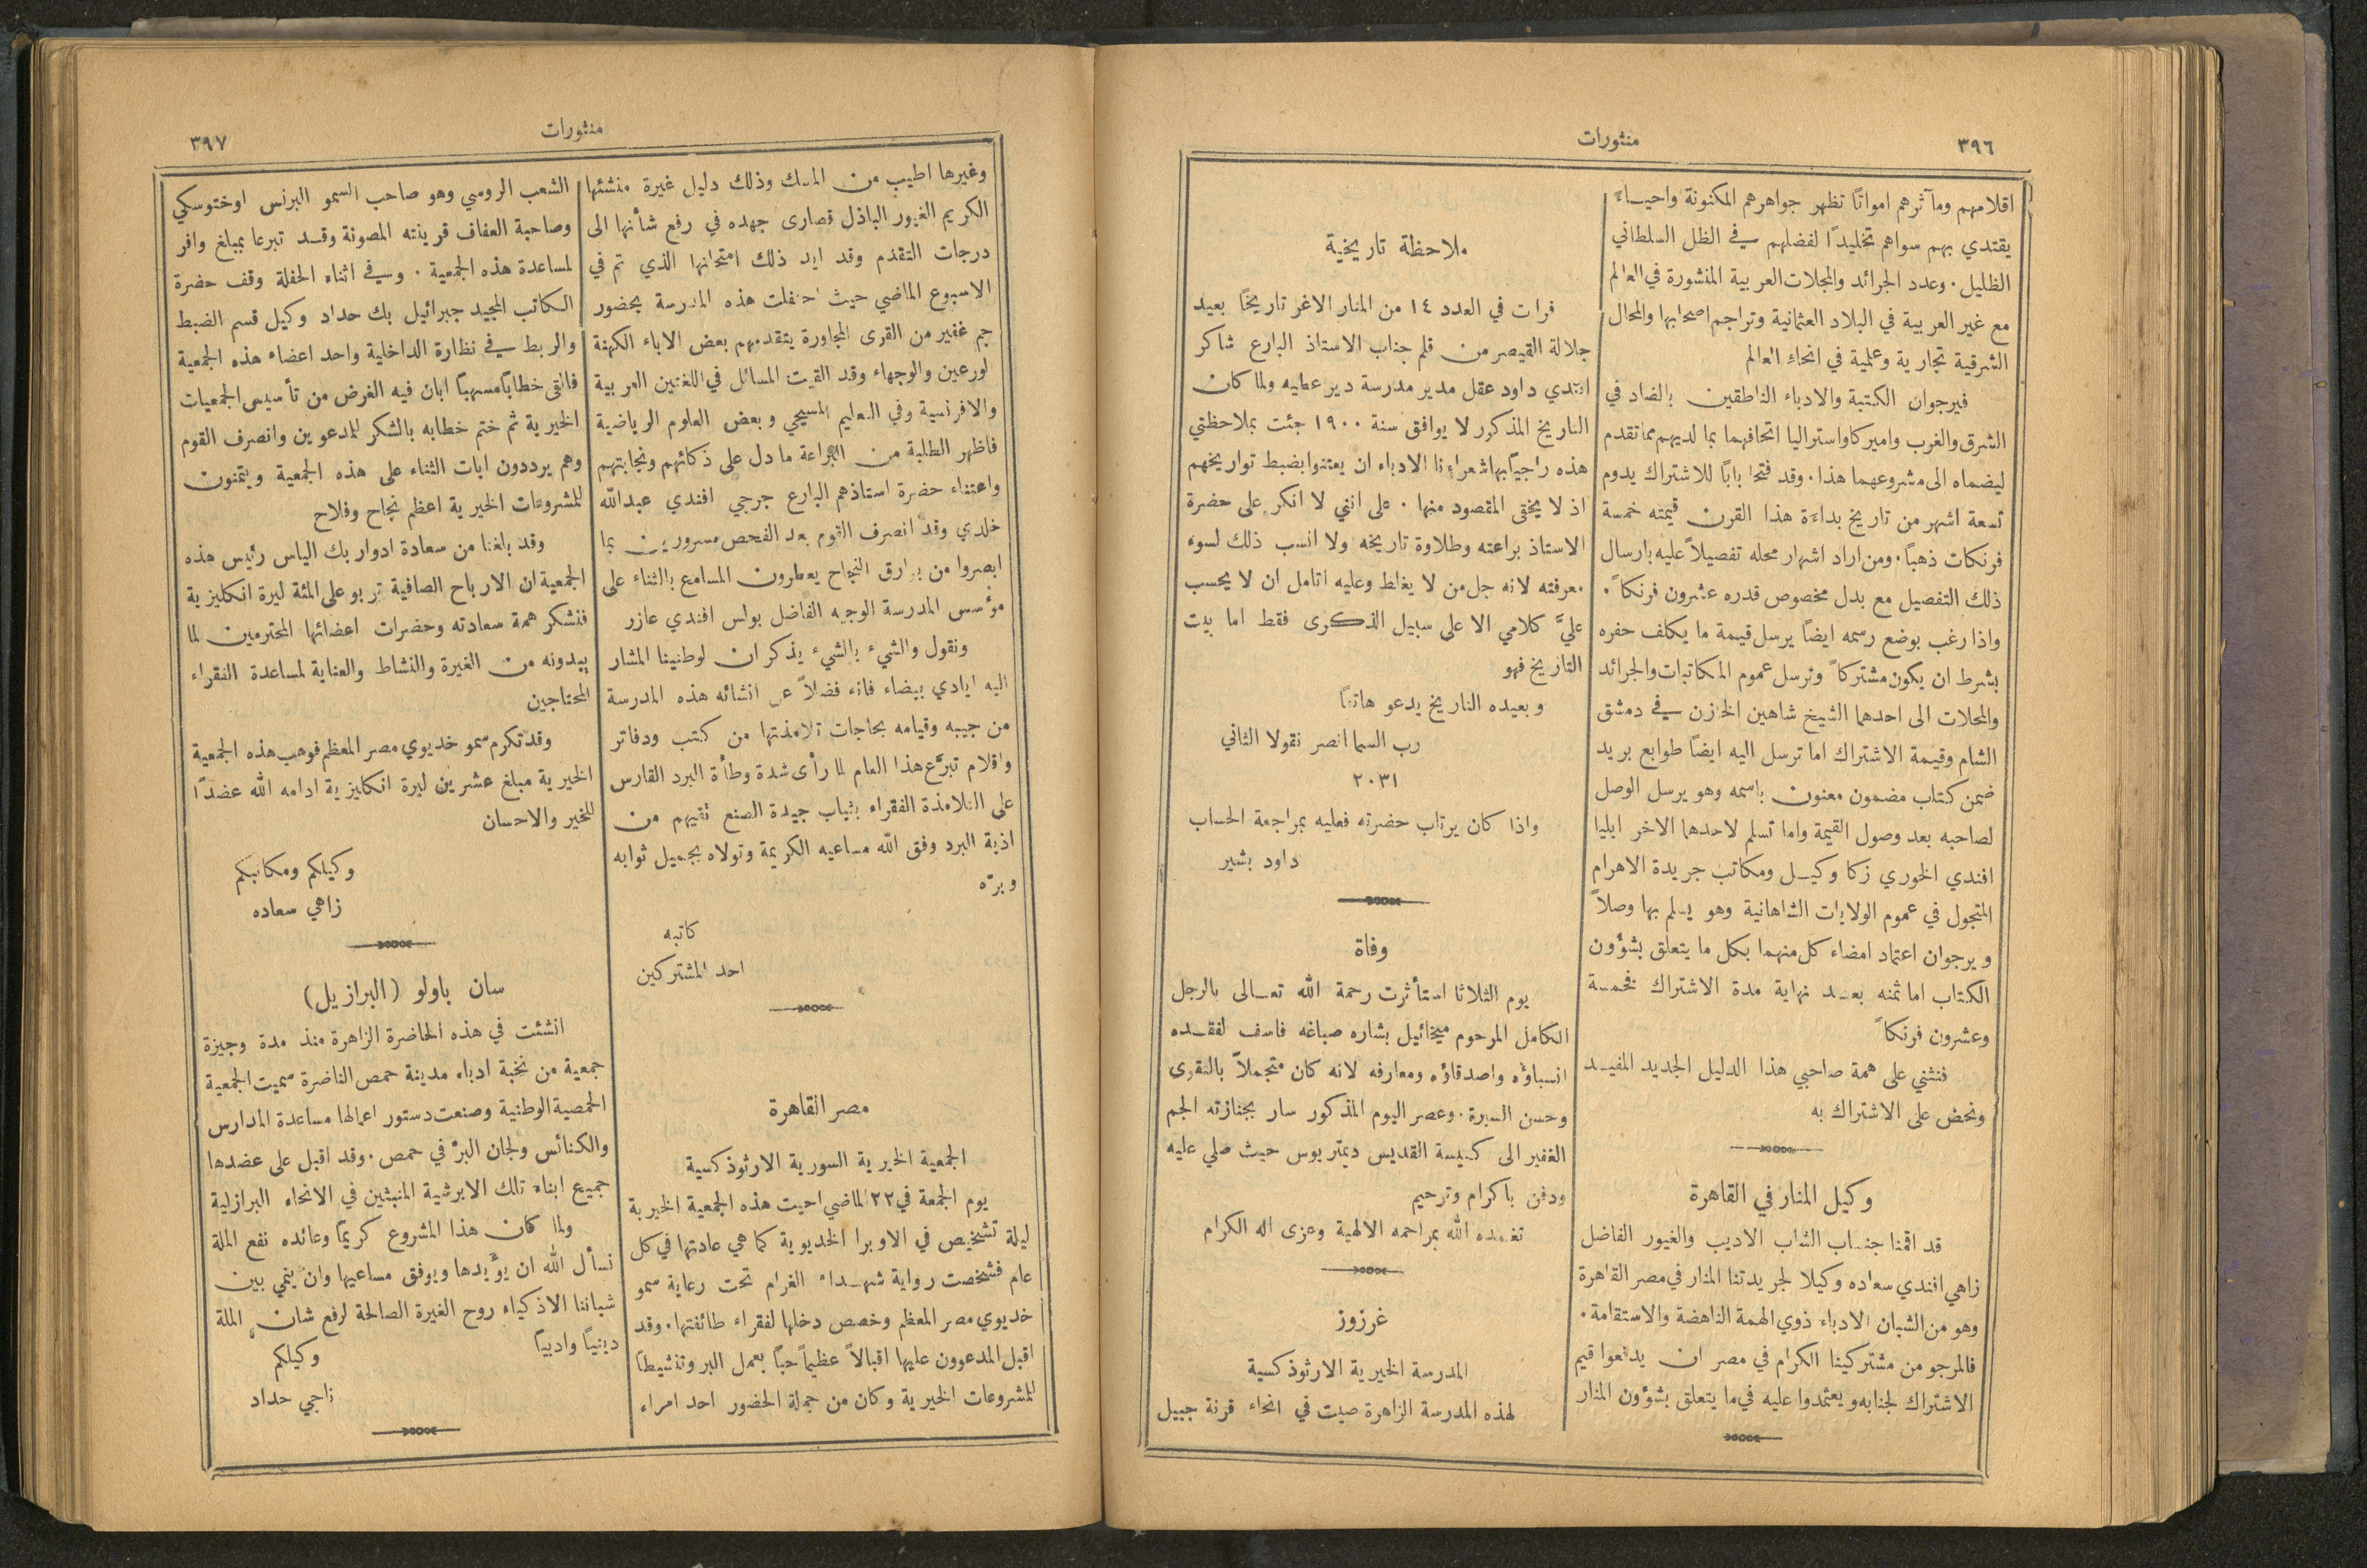 ٣٩٦
منثورات
اقلامهم ومآثرهم امواتًا تظهر جواهرهم المكنونة واحياءً
يقتدي بهم سواهم تخليدًا لفضلهم في الظل السلطاني
الظليل. وعدد الجرائد والمجلات العربية المنشورة في العالم
مع غير العربية في البلاد العثمانية وتراجم اصحابها والمحال
الشرقية تجارية وعلمية في انحاء العالم
فيرجوان الكتبة والادباء الناطقين بالضاد في
الشرق والغرب واميركا واستراليا اتحافهما بما لديهم مما تقدم
ليضماه الى مشروعهما هذا. وقد فتحا بابًا للاشتراك يدوم
تسعة اشهر من تاريخ بداءة هذا القرن قيمته خمسة
فرنكات ذهبًا. ومن اراد اشهار محله تفصيلاً عليه بارسال
ذلك التفصيل مع بدل مخصوص قدره عشرون فرنكاً.
واذا رغب بوضع رسمه ايضاً يرسل قيمة ما يكلف حفره
بشرط ان يكون مشتركاً وترسل عموم المكاتبات والجرائد
والمجلات الى احدهما الشيخ شاهين الخازن في دمشق
الشام وقيمة الاشتراك اما ترسل اليه ايضاً طوابع بريد
ضمن كتاب مضمون معنون باسمه وهو يرسل الوصل
لصاحبه بعد وصول القيمة واما تسلم لاحدهما الاخر ايليا
افندي الخوري زكا وكيل ومكاتب جريدة الاهرام
المتجول في عموم الولايات الشاهانية وهو يسلم بها وصلاً
ويرجوان اعتماد امضاء كل منهما بكل ما يتعلق بشؤون
الكتاب اما ثمنه بعد نهاية مدة الاشتراك فخمسة
وعشرون فرنكاً
فنثني على همة صاحبي هذا الدليل الجديد المفيد
ونحض على الاشتراك به
وكيل المنار في القاهرة
قد اقمنا جناب الشاب الاديب والغيور الفاضل
زاهي افندي سعاده وكيلا لجريدتنا المنار في مصر القاهرة
وهو من الشبان الادباء ذوي الهمة الناهضة والاستقامة.
فالمرجو من مشتركينا الكرام في مصر ان يدفعوا قيم
الاشتراك لجنابه ويعتمدوا عليه في ما يتعلق بشؤون المنار
ملاحظة تاريخية
قرات في العدد ١٤ من المنار الاغر تاريخًا بعيد
جلالة القيصر من قلم جناب الاستاذ البارع شاكر
افندي داود عقل مدير مدرسة دير عطيه ولما كان
التاريخ المذكور لا يوافق سنة ١٩٠٠ جئت بملاحظتي
هذه راجيًا بها شعراءنا الادباء ان يعتنوا بضبط تواريخهم
اذ لا يخفى المقصود منها. على انني لا انكر على حضرة
الاستاذ براعته وطلاوة تاريخه ولا انسب ذلك لسوء
معرفته لانه جل من لا يغلط وعليه اتامل ان لا يحسب
عليَّ كلامي الا على سبيل الذكرى فقط اما بيت
التاريخ فهو
وبعيده التاريخ يدعو هاتفًا
رب السما انصر نقولا الثاني
٢٠٣١
واذا كان يرتاب حضرته فعليه بمراجعة الحساب
داود بشير
وفاة
يوم الثلاثا استأثرت رحمة الله تعالى بالرجل
الكامل المرحوم ميخائيل بشاره صباغه فاسف لفقده
انسباؤه واصدقاؤه ومعارفه لانه كان متجملاً بالتقوى
وحسن السيرة. وعصر اليوم المذكور سار بجنازته الجم
الغفير الى كنيسة القديس ديمتريوس حيث صلي عليه
ودفن باكرام وترحيم
تغمده الله بمراحمه الالهية وعزى اله الكرام
غرزوز
المدرسة الخيرية الارثوذكسية
لهذه المدرسة الزاهرة صيت في انحاء قرنة جبيل
منثورات
٣٩٧
وغيرها اطيب من المسك وذلك دليل غيرة منشئها
الكريم الغيور الباذل قصارى جهده في رفع شأنها الى
درجات التقدم وقد ايد ذلك امتحانها الذي تم في
الاسبوع الماضي حيث احتفلت هذه المدرسة بحضور
جم غفير من القرى المجاورة يتقدمهم بعض الاباء الكهنة
لورعين والوجهاء وقد القيت المسائل في اللغتين العربية
والافرنسية وفي التعليم المسيحي وبعض العلوم الرياضية
فاظهر الطلبة من البراعة ما دل على ذكائهم ونجابتهم
واعتناء حضرة استاذهم البارع جرجي افندي عبدالله
خلدي وقد انصرف القوم بعد الفحص مسرورين بما
ابصروا من بوارق النجاح يعطرون المسامع بالثناء على
مؤسس المدرسة الوجيه الفاضل بولس افندي عازر
ونقول والشيء بالشيء يذكر ان لوطنينا المشار
اليه ايادي بيضاء فانه فضلاً عن انشائه هذه المدرسة
من جيبه وقيامه بحاجات تلامذتها من كتب ودفاتر
واقلام تبرَّع هذا العام لما رأى شدة وطأة البرد القارس
على التلامذة الفقراء بثياب جيدة الصنع تقيهم من
اذية البرد وفق الله مساعيه الكريمة وتولاه بجميل ثوابه
وبرّه
كاتبه
احد المشتركين
مصر القاهرة
الجمعية الخيرية السورية الارثوذكسية
يوم الجمعة في ٢٢ الماضي احيت هذه الجمعية الخيرية
ليلة تشخيص في الاوبرا الخديوية كما هي عادتها في كل
عام فشخصت رواية شهداء الغرام تحت رعاية سمو
خديوي مصر المعظم وخصص دخلها لفقراء طائفتها. وقد
اقبل المدعوون عليها اقبالاً عظيماً حبًا بعمل البر وتنشيطًا
للمشروعات الخيرية وكان من جملة الحضور احد امراء
الشعب الروسي وهو صاحب السمو البرنس اوختوسكي
وصاحبة العفاف قرينته المصونة وقد تبرعا بمبلغ وافر
لمساعدة هذه الجمعية. وفي اثناء الحفلة وقف حضرة
الكاتب المجيد جبرائيل بك حداد وكيل قسم الضبط
والربط في نظارة الداخلية واحد اعضاء هذه الجمعية
فالقى خطابًا مسهبًا ابان فيه الغرض من تأسيس الجمعيات
الخيرية ثم ختم خطابه بالشكر للمدعوين وانصرف القوم
وهم يرددون ايات الثناء على هذه الجمعية ويتمنون
للمشروعات الخيرية اعظم نجاح وفلاح
وقد بلغنا من سعادة ادوار بك الياس رئيس هذه
الجمعية ان الارباح الصافية تربو على المئة ليرة انكليزية
فنشكر همة سعادته وحضرات اعضائها المحترمين لما
يبدونه من الغيرة والنشاط والعناية لمساعدة الفقراء
المحتاجين
وقد تكرم سمو خديوي مصر المعظم فوهب هذه الجمعية
الخيرية مبلغ عشرين ليرة انكليزية ادامه الله عضدًا
للخير والاحسان
وكيلكم ومكاتبكم
زاهي سعاده
سان باولو (البرازيل)
انشئت في هذه الحاضرة الزاهرة منذ مدة وجيزة
جمعية من نخبة ادباء مدينة حمص الناضرة سميت الجمعية
الحمصية الوطنية وصنعت دستور اعمالها مساعدة المدارس
والكنائس ولجان البرّ في حمص. وقد اقبل على عضدها
جميع ابناء تلك الابرشية المنبثين في الانحاء البرازلية
ولما كان هذا المشروع كريمًا وعائده نفع الملة
نسأل الله ان يؤيدها ويوفق مساعيها وان ينمي بين
شباننا الاذكياء روح الغيرة الصالحة لرفع شان الملة
دينيًا وادبيًا
وكيلكم
ناجي حداد